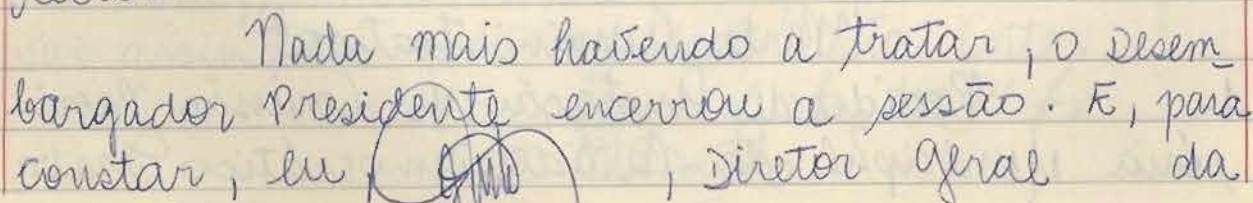 Nada mais havendo a tratar, o Desem_
bargador Presidente encerrou a sessão. E, para
constar, eu, , Diretor Geral da